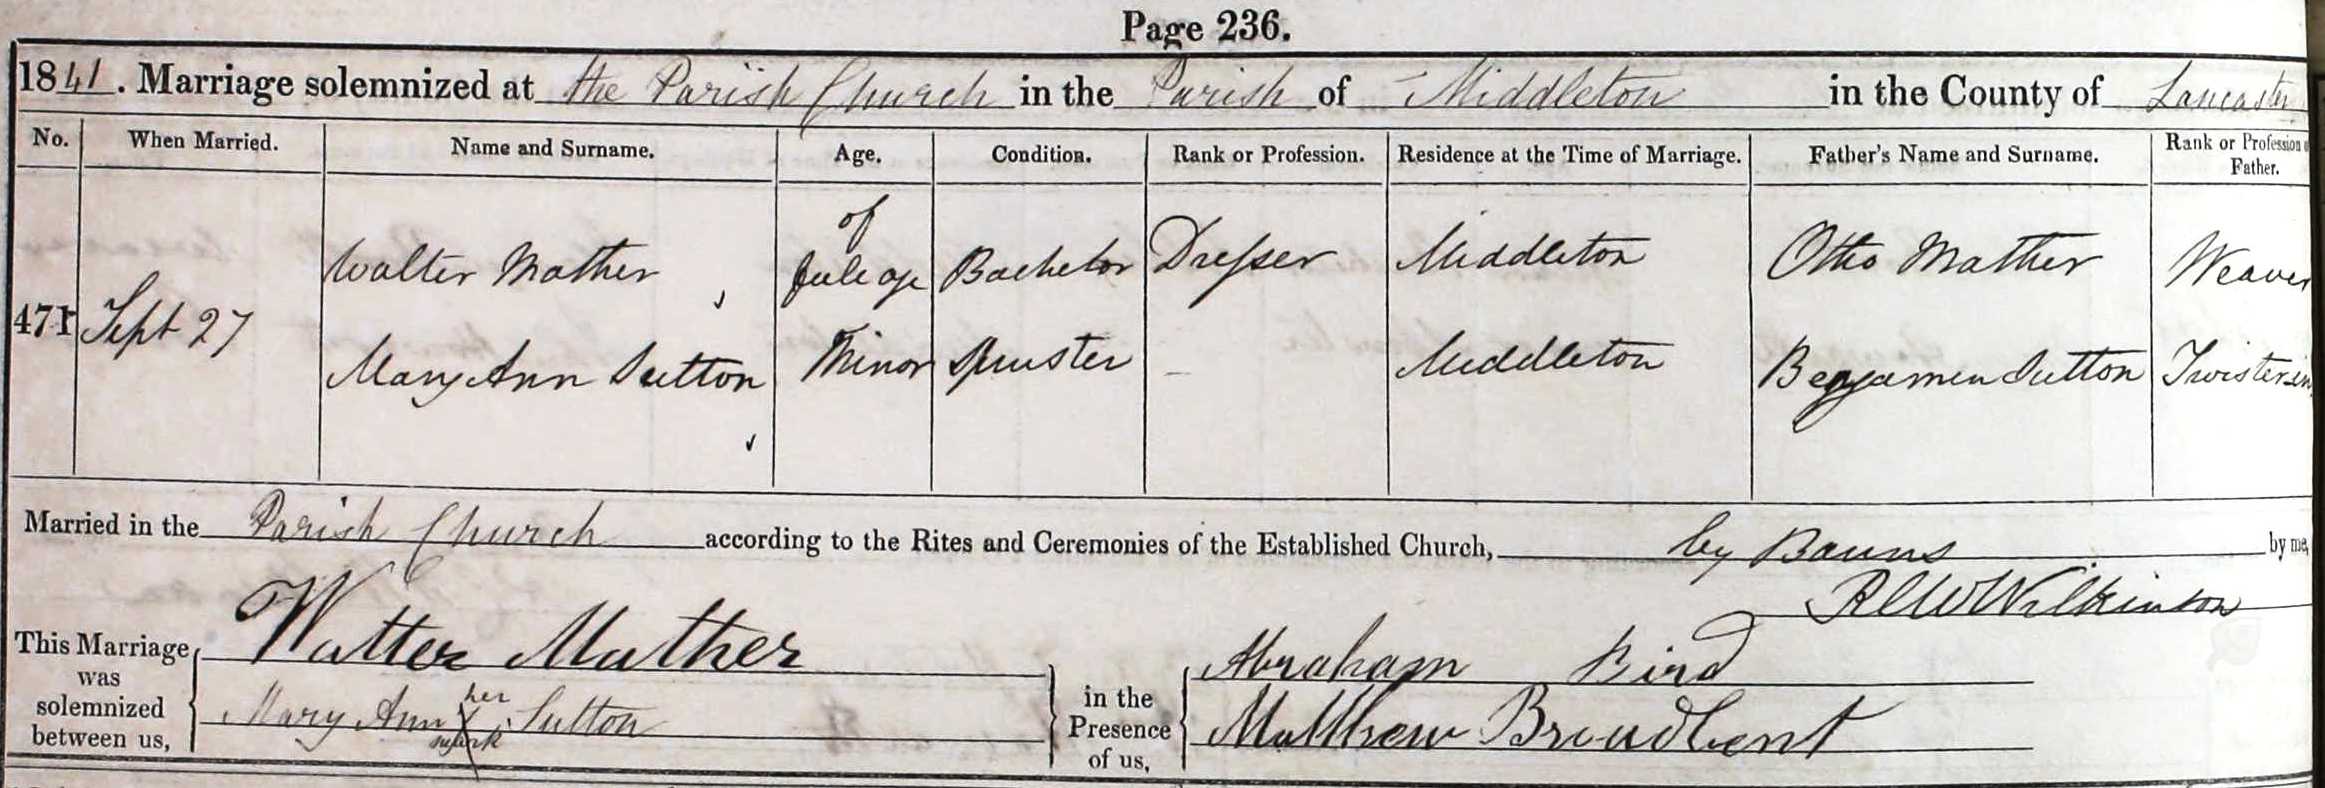 Page 236.
1841. Marriage solemnized at the Parish Church in the Parish of Middleton in the County of Lancaster
No. When Married. Name and Surname. Age. Condition. Rank or Profession. Residence at the Time of Marriage. Father's Name and Surname. Rank or Profession of Father.
of
Walter Mather full age Bachelor Dresser Middleton Otho Mather Weaver
471 Sept 27
Mary Ann Sutton Minor Spinster – Middleton Benjamen Sutton Twister in
Married in the Parish Church according to the Rites and Ceremonies of the Established Church, by Banns by me,
Wilkinson
This Marriage was solemnized between us,
Walter Mather
Mary Ann X Sutton
her
mark
in the Presence of us,
Abraham Bird
Matthew Broadbent